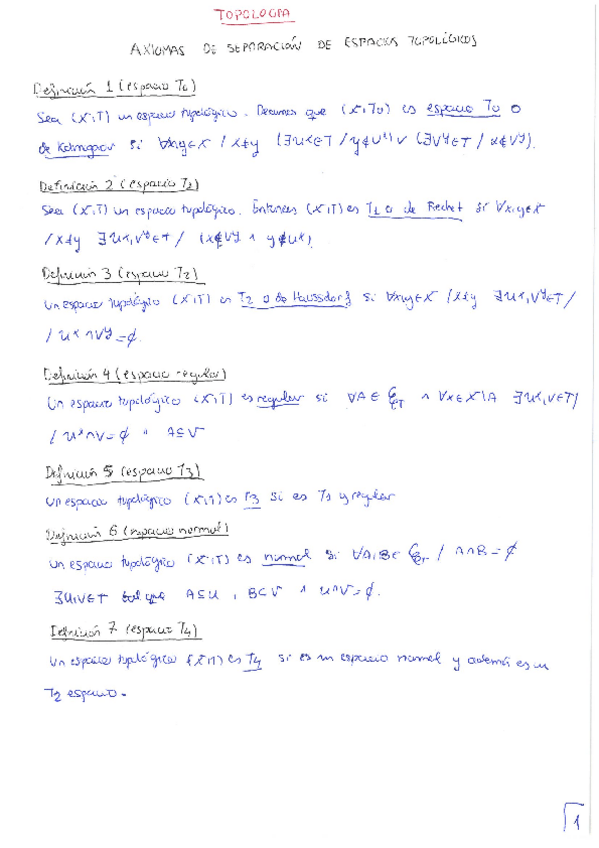 TOPOLOGÍA
AXIOMAS DE SEPARACIÓN DE ESPACIOS TOPOLÓGICOS
Definición 1 (espacio T₀)
Sea (X,T) un espacio topológico. Decimos que (X,T₀) es espacio T₀ o
de Kolmogorov si ∀x,y∈X / x≠y (∃Uˣ∈T / y∉Uˣ) ∨ (∃Vʸ∈T / x∉Vʸ).
Definición 2 (espacio T₁)
Sea (X,T) un espacio topológico. Entonces (X,T) es T₁ o de Frechet si ∀x,y∈X
/ x≠y ∃Uˣ,Vʸ∈T / (x∉Vʸ ∧ y∉Uˣ)
Definición 3 (espacio T₂)
Un espacio topológico (X,T) es T₂ o de Haussdorf si ∀x,y∈X / x≠y ∃Uˣ,Vʸ∈T /
/ Uˣ∩Vʸ=∅.
Definición 4 (espacio regular)
Un espacio topológico (X,T) es regular si ∀A∈C_T ∧ ∀x∈X\A ∃Uˣ,V∈T /
/ Uˣ∩V=∅ ∧ A⊆V
Definición 5 (espacio T₃)
Un espacio topológico (X,T) es T₃ si es T₁ y regular
Definición 6 (espacio normal)
Un espacio topológico (X,T) es normal si ∀A,B∈C_T / A∩B=∅
∃U,V∈T tal que A⊆U, B⊆V ∧ U∩V=∅.
Definición 7 (espacio T₄)
Un espacio topológico (X,T) es T₄ si es un espacio normal y además es un
T₂ espacio.
1